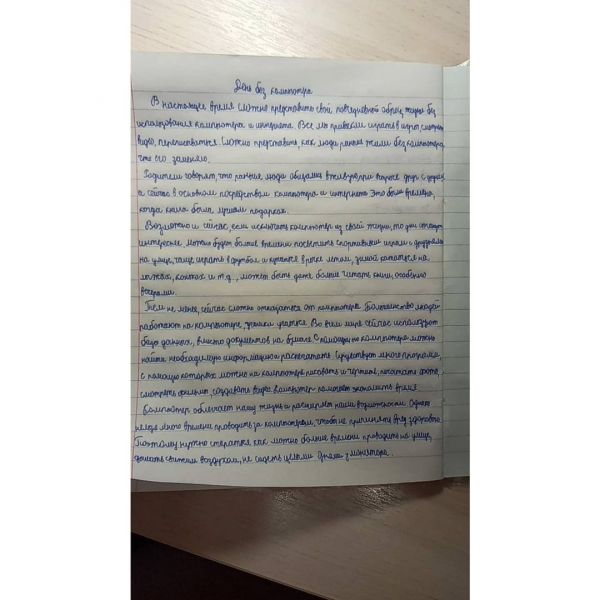 День без компьютера
В настоящее время сложно представить свой повседневный образ жизни без
использования компьютера и интернета. Все мы привыкли играть в игры, смотреть
видео, переписываться. Сложно представить, как люди раньше жили без компьютера,
что его заменяло.
Родители говорят, что раньше люди общались вживую при встрече друг с другом,
а сейчас в основном посредством компьютера и интернета. Это были времена,
когда книга была лучшим подарком.
Возможно и сейчас, если исключить компьютер из своей жизни, то дни станут
интереснее. Можно будет больше времени посвятить спортивным играм с друзьями
на улице, чаще играть в футбол и купаться в реке летом, зимой кататься на
лыжах, коньках и т.д., может быть даже больше читать книги, особенно
вечерами.
Тем не менее, сейчас сложно отказаться от компьютера. Большинство людей
работают на компьютере, ученики учатся. Во всем мире сейчас используют
базы данных, вместо документов на бумаге. С помощью компьютера можно
найти необходимую информацию и распечатать. Существуют много программ,
с помощью которых можно на компьютере рисовать и чертить, печатать фото,
смотреть фильмы, создавать видео. Компьютер помогает экономить время.
Компьютер облегчает нашу жизнь и расширяет наши возможности. Однако
нельзя много времени проводить за компьютером, чтоб не причинять вред здоровью.
Поэтому нужно стараться как можно больше времени проводить на улице,
дышать свежим воздухом, не сидеть целыми днями у монитора.